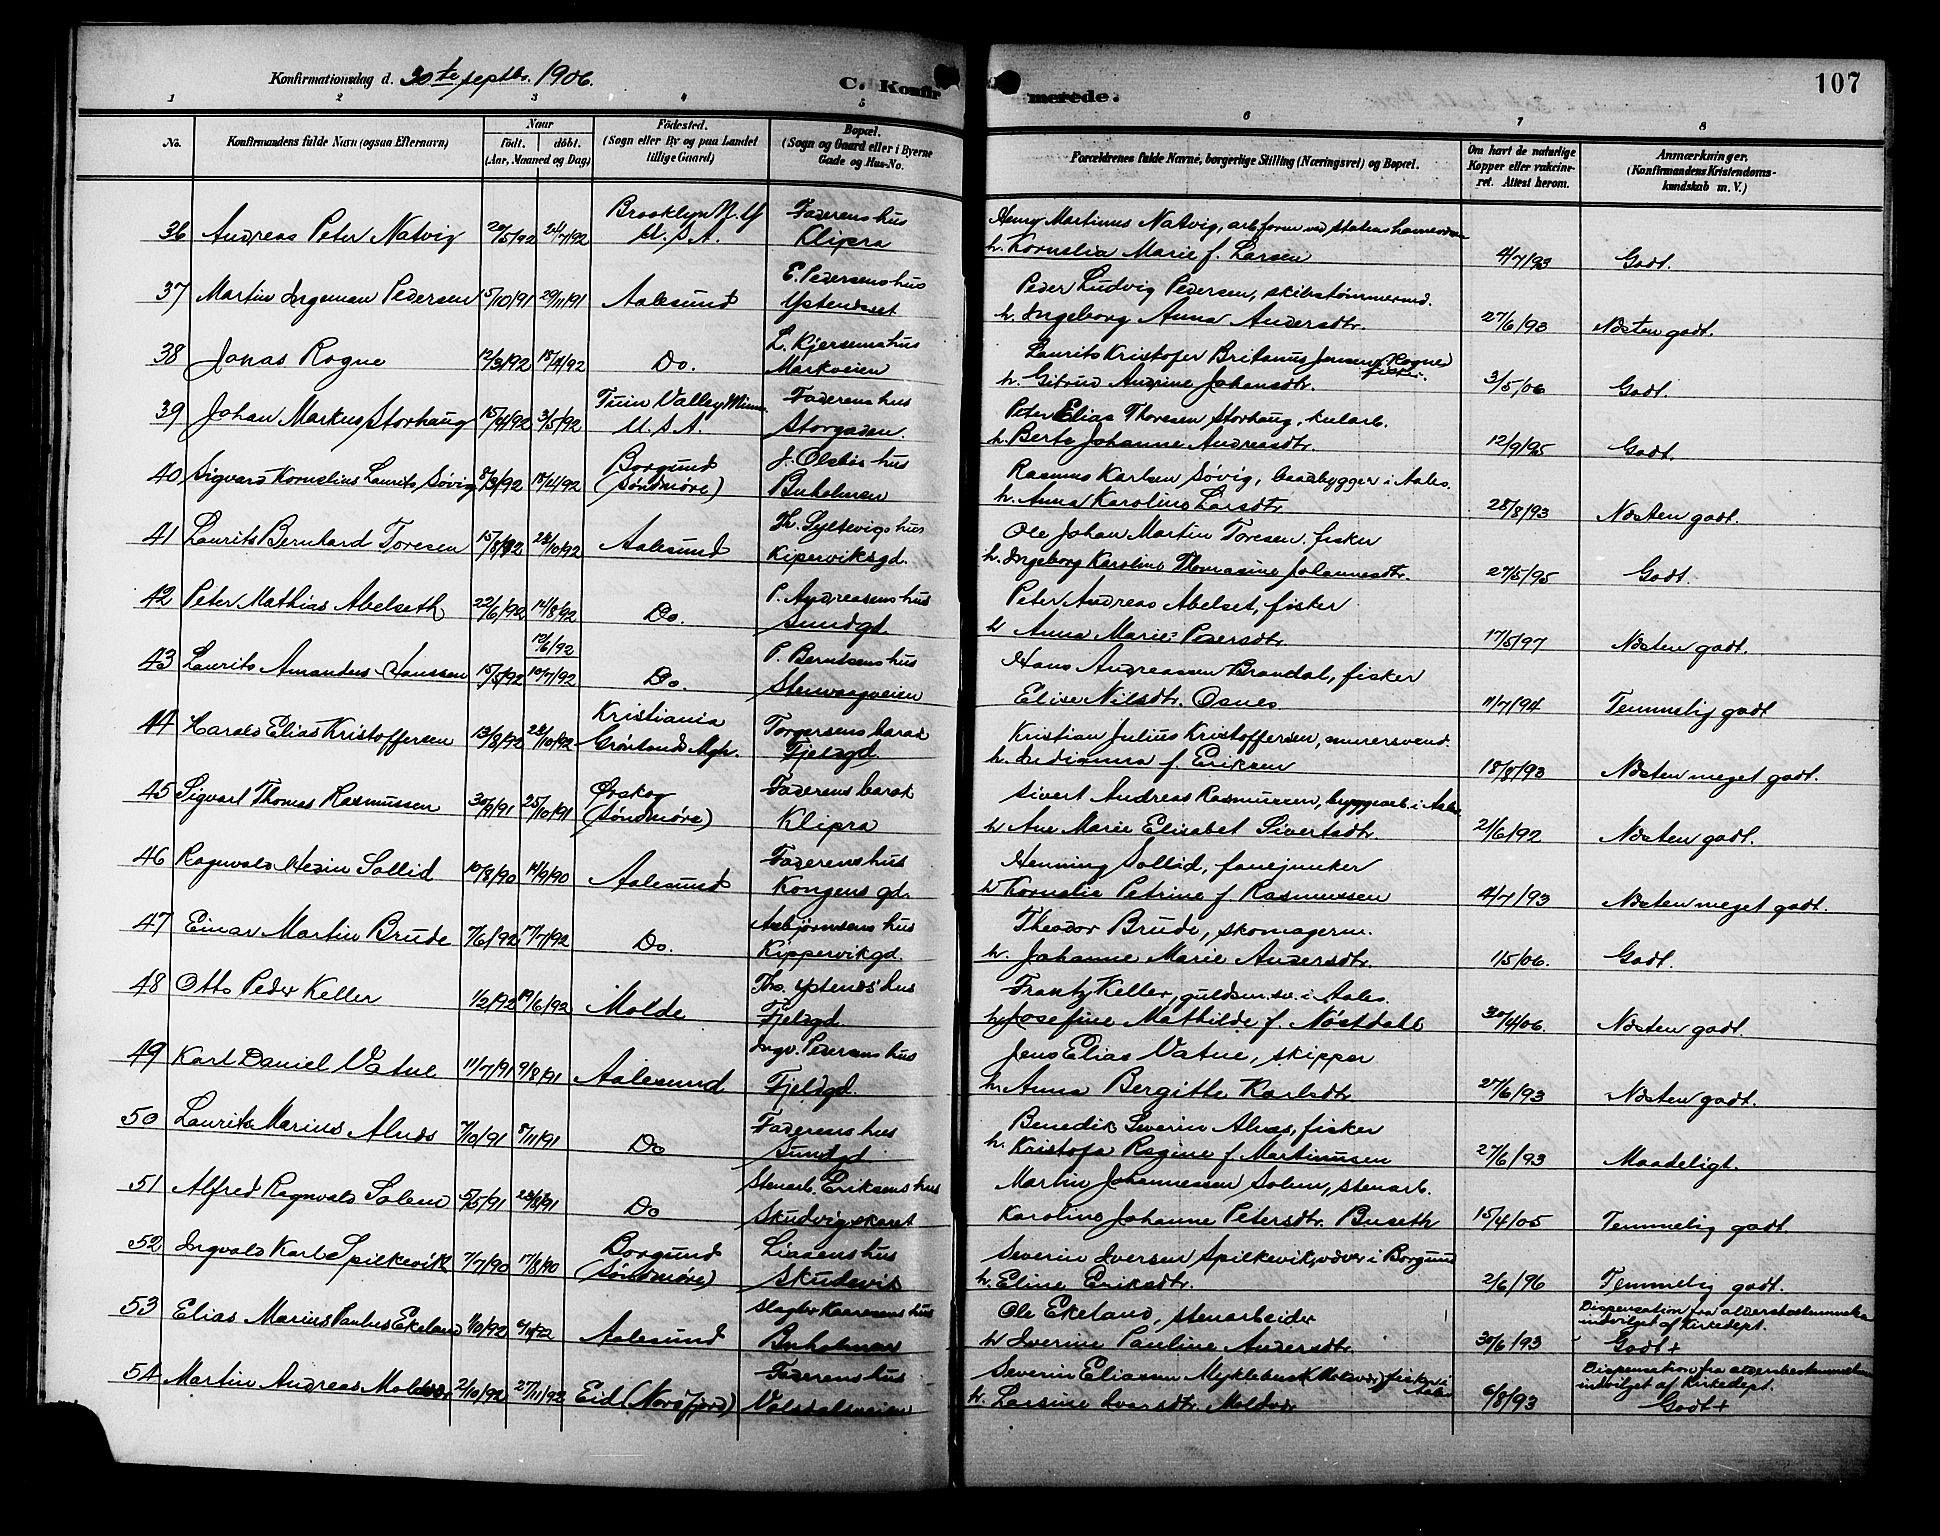 Konfirmationsdag d. 30te septbr. 1906.
C. Konfir merede. 107
1 2 3 4 5 6 7 8
No. Konfirmandens fulde Navn (ogsaa Efternavn) Naar Født. døbt. (Aar, Maaned og Dag) Fødested. (Sogn eller By og paa Landet tillige Gaard) Bopæl. (Sogn og Gaard eller i Byerne Gade og Hus-No. Forældrenes fulde Navne, borgerlige Stilling (Næringsvei) og Bopæl. Om havt de naturlige Kopper eller vakcineret. Attest herom. Anmærkninger. (Konfirmandens Kristendomskundskab m. V.)
36 Andreas Peter Natvig 20/5/92 24/7/92 Brooklyn N. Y. U. S. A. Faderens hus Klipra Henry Martinus Natvig, arb.form. ved statens havnevæsen
h. Kornelia Marie f. Larsen 4/7/93 Godt.
37 Martin Ingeman Pedersen 5/10/91 29/11/91 Aalesund E. Pedersens hus Ystenæset Peder Ludvig Pedersen, skibstømmermd.
h. Ingeborg Anna Andersdtr. 27/6/93 Næsten godt.
38 Jonas Rogne 12/3/92 18/4/92 Do. L. Kjersems hus Markveien Laurits Kristofer Britanus Jensen Rogne fisker.
h. Gitrud Andrine Johansdtr. 3/5/06 Godt.
39 Johan Markus Storhaug 15/4/92 3/5/92 Twin Valley Minn. U. S. A. Faderens hus Storgaden. Peter Elias Thoresen Storhaug, kularb.
h. Berte Johanne Andreasdtr. 12/9/95 Godt.
40 Sigvard Kornelius Laurits Søvig 8/3/92 18/4/92 Borgund (Søndmøre) J. Olsens hus Buholmen Rasmus Karlsen Søvig, baadbygger i Aales.
h. Anna Karoline Larsdtr. 28/8/93 Næsten godt.
41 Laurits Bernhard Toresen 15/8/92 23/10/92 Aalesund Th. Syltevigs hus Kiperviksgd. Ole Johan Martin Toresen, fisker
h. Ingeborg Karoline Thomasine Johannesdtr. 27/5/95 Godt
42 Peter Mathias Abelseth 22/6/92 14/8/92 Do. P. Andreasens hus Sundgd. Peter Andreas Abelset, fisker
h Anna Marie Pedersdtr. 17/5/97 Næsten godt.
43 Laurits Amandus Hanssen 15/5/92 12/6/92 10/7/92 Do. P. Berntsens hus Stenvaagveien Hans Andreassen Brandal, fisker
Elise Nilsdtr. Osnes 11/7/94 Temmelig godt
44 Harald Elias Kristoffersen 13/8/92 23/10/92 Kristiania Grønlands Mgh. Torgersens barak Fjeldgd. Kristian Julius Kristoffersen, murersvend.
h. Indianna f. Eriksen 18/8/93 Næsten meget godt.
45 Sigvart Thomas Rasmussen 30/9/91 25/10/91 Ørskog (Søndmøre) Faderens barak Klipra Sivert Andreas Rasmussen, byggearb. i Aales
h Ane Marie Elisabet Sivertsdtr. 21/6/92 Næsten godt.
46 Ragnvald Hesin Sollid 10/8/90 14/9/90 Aalesund Faderens hus Kongens gd. Henning Sollid, fanejunker
h Kornelie Petrine f. Rasmussen 4/7/93 Næsten meget godt.
47 Einar Martin Brude 7/6/92 17/7/92 Do. Asbjørnsens hus Kippervikgd. Theodor Brude, skomagerm.
h. Johanne Marie Andersdtr. 1/5/06. Godt.
48 Otto Peder Keller 1/2/92 19/6/92 Molde Tho. Ystenes hus Fjeldgd. Frantz Keller, guldsm.sv. i Aales.
h Josefine Mathilde f. Nøstdahl 30/4/06. Næsten godt.
49 Karl Daniel Vatne 11/7/91 9/8/91 Aalesund Ingv. Pedersens hus Fjeldgd. Jens Elias Vatne, skipper
h. Anna Bergitte Karlsdtr 27/6/93 Næsten godt.
50 Laurits Marius Alnes 7/10/91 8/11/91 Do Faderens hus Sundgd Benedik Severin Alnes, fisker
h. Kristofa Regine f. Martinusen 27/6/93 Maadeligt.
51 Alfred Ragnvald Solem 5/5/91 23/8/91 Do Stenarb. Eriksens hus Skudvigskaret Martin Johannessen Solem, stenarb.
Karoline Johanne Petersdtr. Buseth 15/4/05 Temmelig godt
52 Ingvald Karl Spilkevik 7/7/90 17/8/90 Borgund (Søndmøre) Liaaens hus Skudevik Severin Iversen Spilkevik, væver i Borgund
h. Eline Eriksdtr. 2/6/96 Temmelig godt.
53 Elias Marius Paulus Ekeland 1/10/92 Aalesund Slagter Kaaresens hus Buholmen Ole Ekeland, stenarbeider
h Iverine Pauline Andersdtr. 30/6/93 Dispensation fra aldersbestemmelsen indvilget af Kirkedept. Godt +
54 Martin Andreas Moldvær 2/10/92 27/11/92 Eid (Nordfjord) Faderens hus Volsdalsveien Severin Eliassen Myklebust (Moldvær) fisker i Aales
h. Larsine Ivarsdtr. Moldvær 6/8/93 Dispensation fra aldersbestemmelsen indvilget af Kirkedept. Godt +